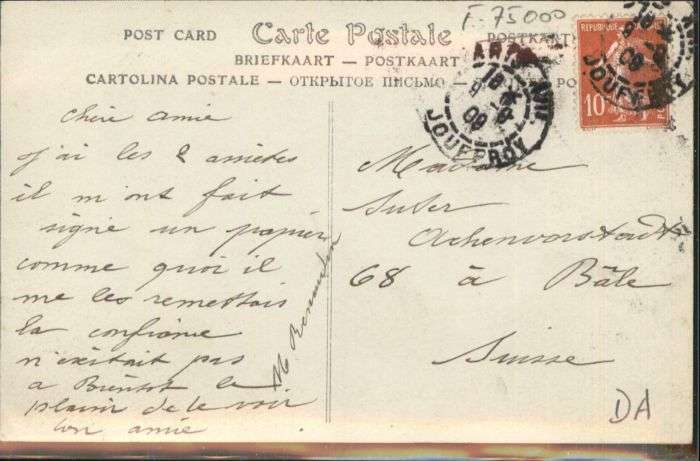 F. 75000
POST CARD Carte Postale POSTKARTE
BRIEFKAART — POSTKAART
CARTOLINA POSTALE — ОТКРЫТОЕ ПИСЬМО
PO
JOUFFROY
09
REPUBLIQUE
10
POSTES
JOUFF
Chère amie
J'ai les 2
il m'ont fait
signé un papier
comme quoi il
me les remettais
la confiance
n'existait pas
a Bientôt le
plaisir de te voir
ton amie
M
Madame
Suter
Achenvorstadt
68 à Bâle
Suisse
DA